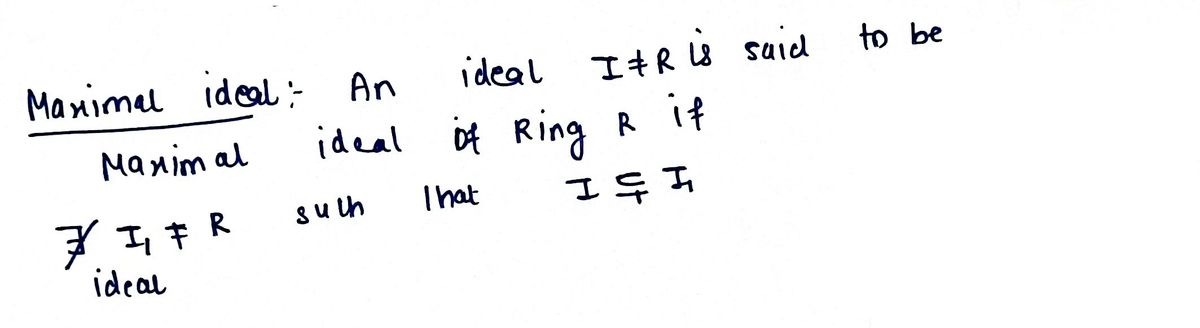 Maximal ideal :- An ideal I ≠ R is said to be
Maximal ideal of Ring R if
∄ I₁ ≠ R such that I ⊊ I₁
ideal